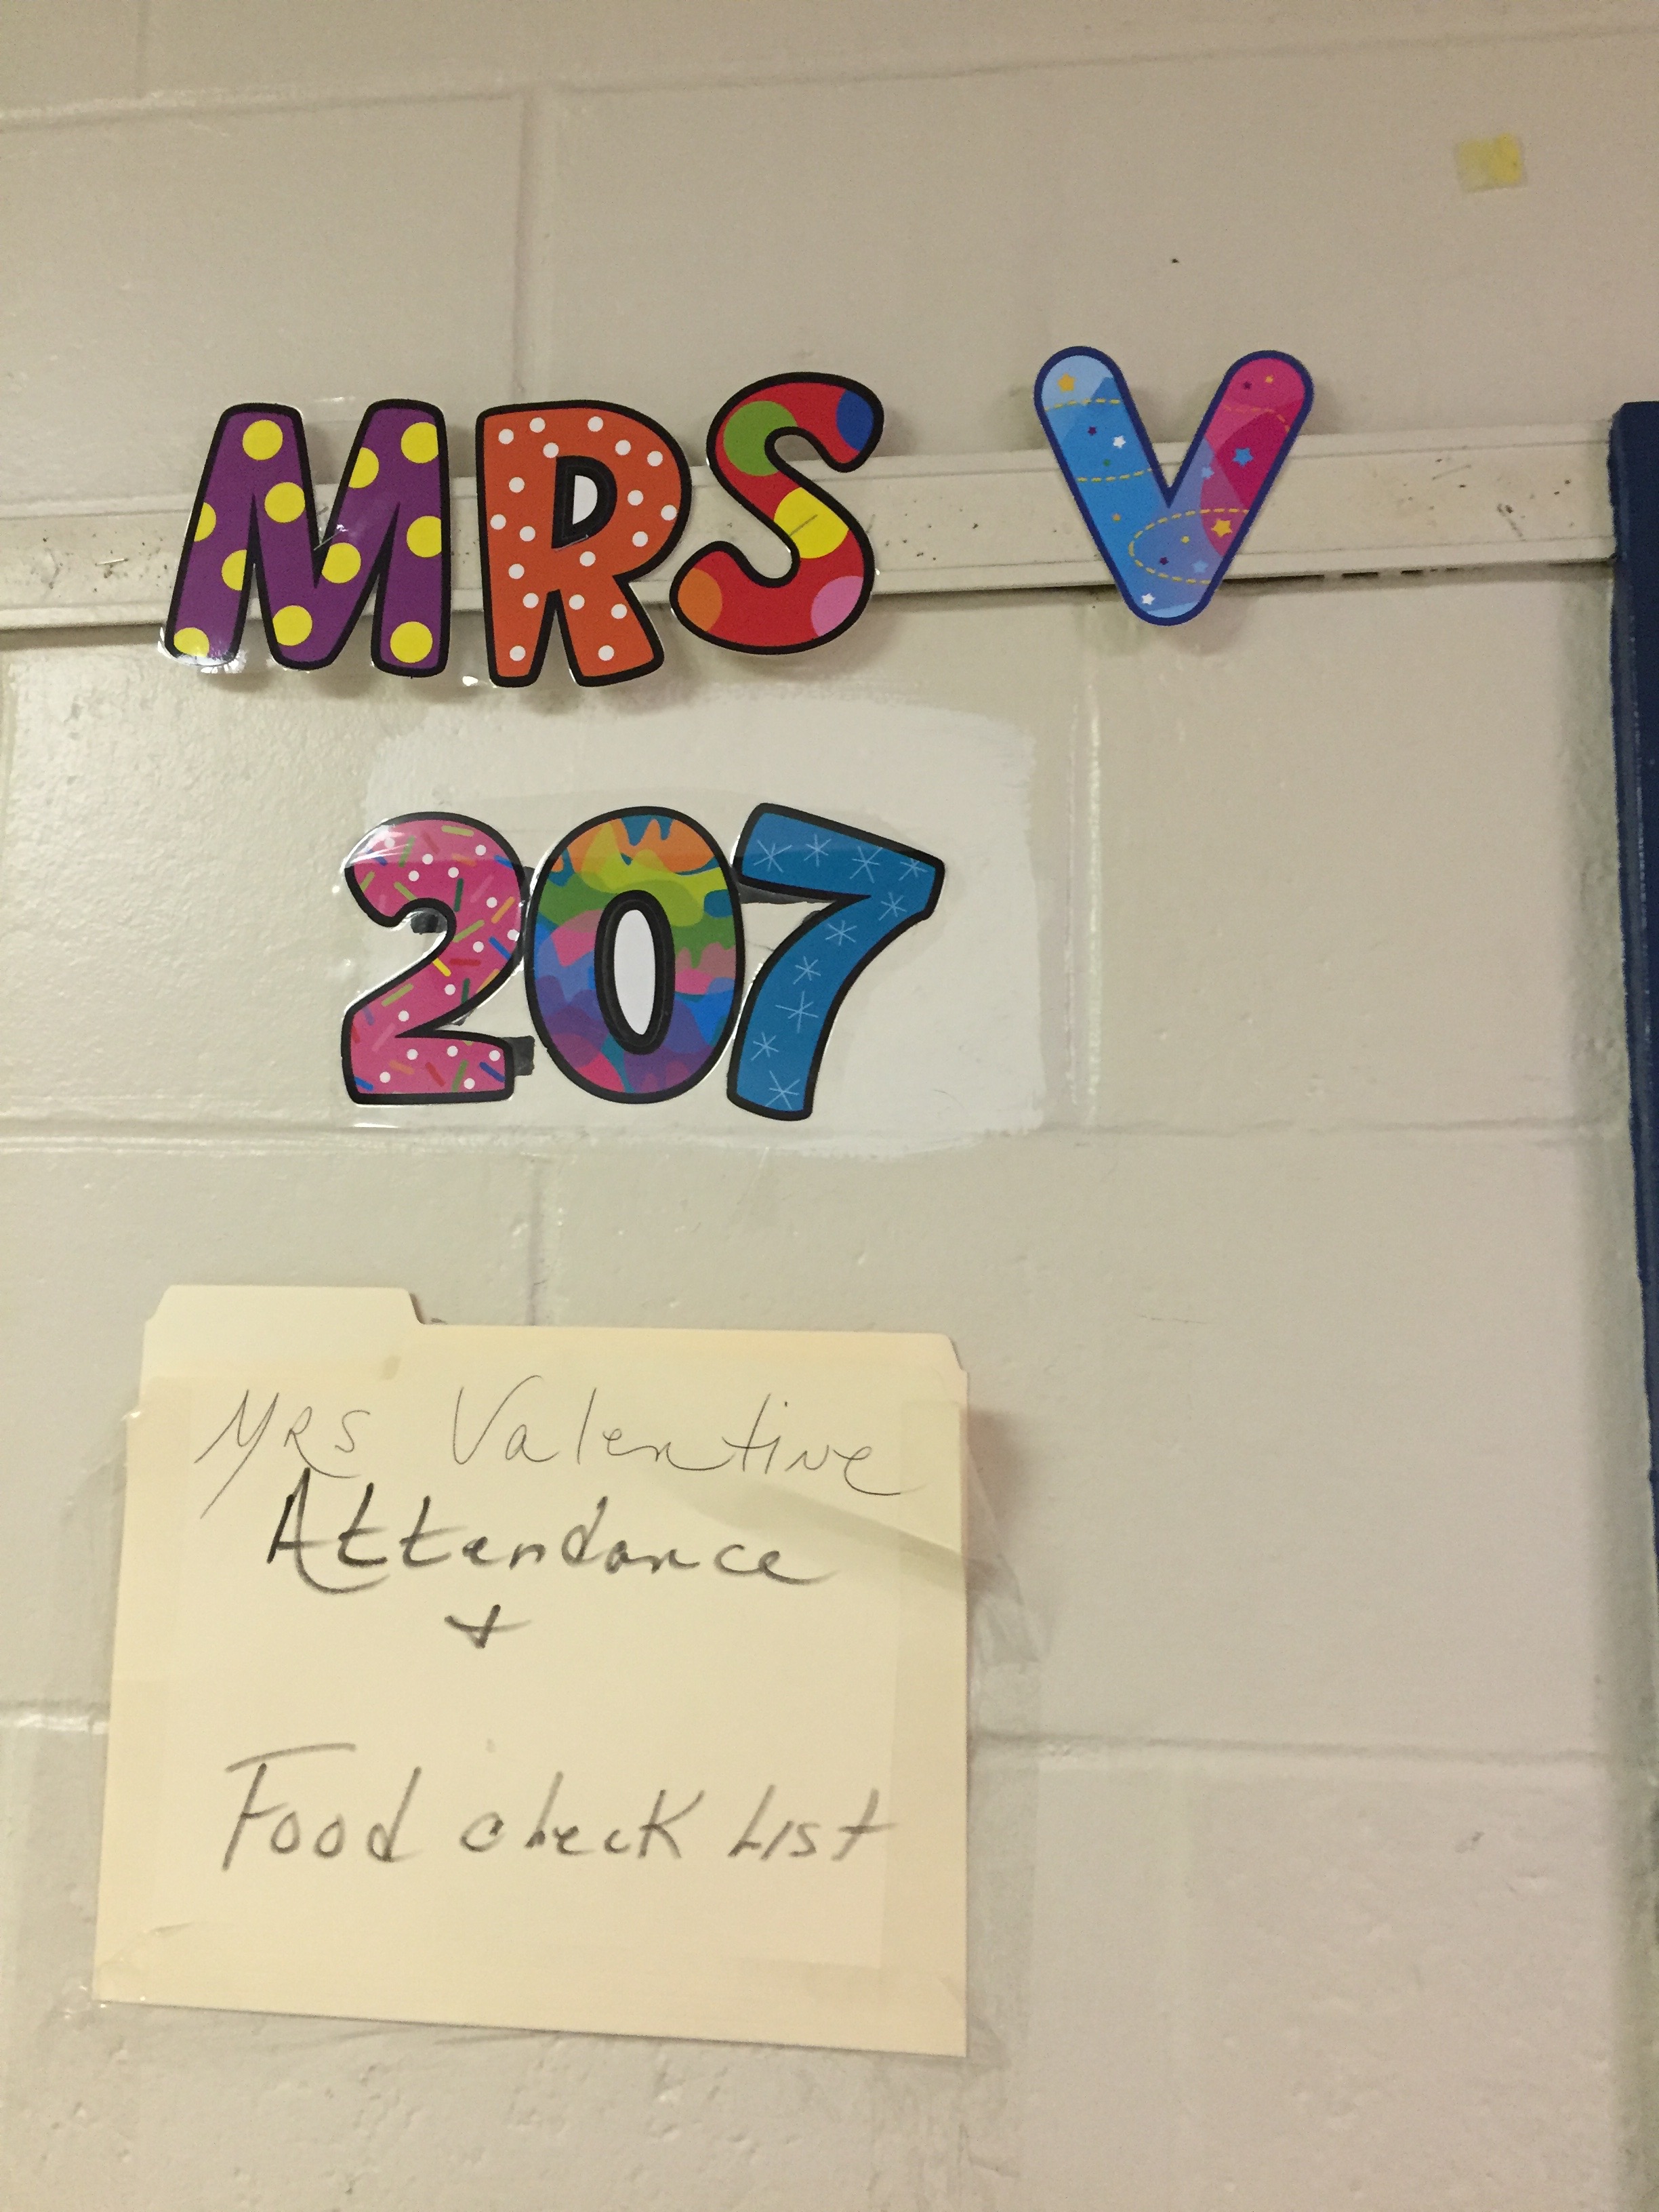 MRS V
207
MRS Valentine
Attendance
+
Food check List